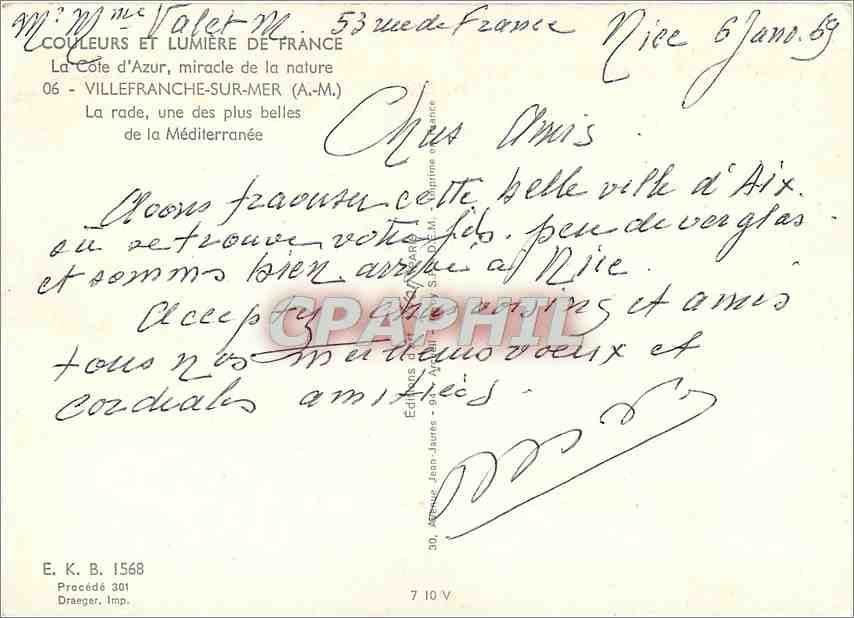 Mr Mme Valet M. 53 rue de France Nice 6 Janv. 69
COULEURS ET LUMIÈRE DE FRANCE
La Côte d'Azur, miracle de la nature
06 - VILLEFRANCHE-SUR-MER (A.-M.)
La rade, une des plus belles
de la Méditerranée
Chers Amis.
Avons traversé cette belle ville d'Aix.
où se trouve votre fils. peu de verglas.
et sommes bien arrivé à Nice.
Acceptez chers voisins et amis
tous nos meilleurs voeux et
cordiales amitiés.
CPAPHIL
Éditions d'Art
30, Avenue Jean-Jaurès - 94 - Arcueil - Imprimé en France
E. K. B. 1568
Procédé 301
Draeger, Imp.
7 10 V